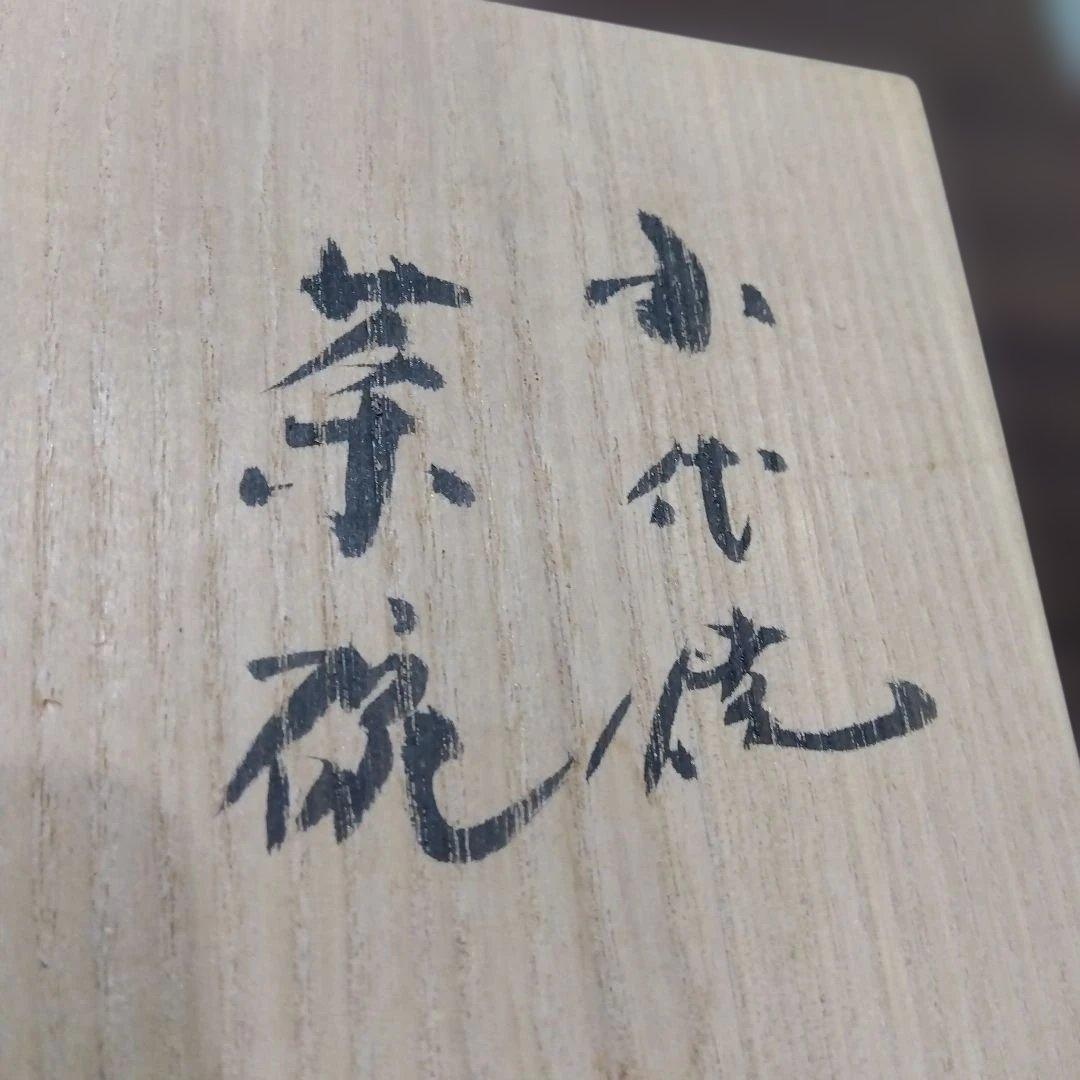 小代焼
茶碗